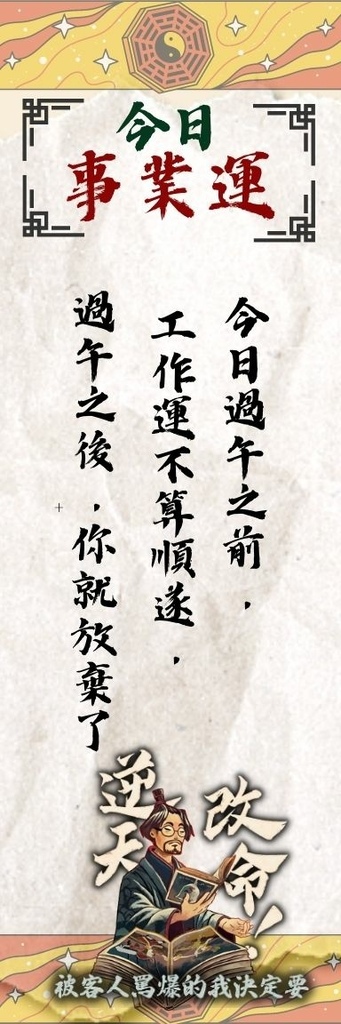 今日
事業運
今日過午之前，
工作運不算順遂，
過午之後，你就放棄了
逆天
改命！
被客人罵爆的我決定要